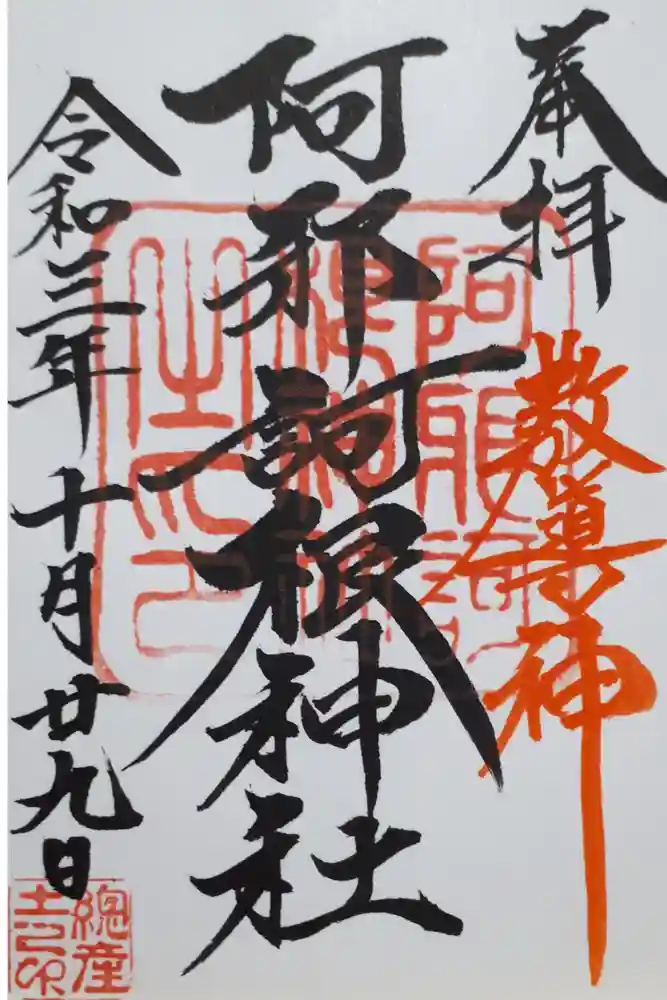 奉拝
教導神
阿邪訶根神社
令和三年十月廿九日
阿邪訶
根神社
之印
總産